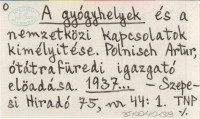 A gyógyhelyek és a
nemzetközi kapcsolatok
kimélyitése. Polnisch Artur,
ótátrafüredi igazgató
előadása. 1937... — Szepe-
si Hiradó 75, nr 44: 1. TNP